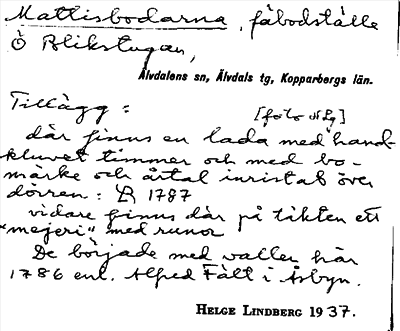 Mattisbodarna, fäbodställe
Ö Blikstugan,
Älvdalens sn, Älvdals tg, Kopparbergs län.
Tillägg:
[foto HLg]
där finns en lada med hand-
kluvet timmer och med bo-
märke och årtal inristat över
dörren: R 1787
vidare finns där på täkten ett
"mejeri" med runor
De började med vallen här
1786 enl. Alfred Fält i Åsbyn.
HELGE LINDBERG 1937.